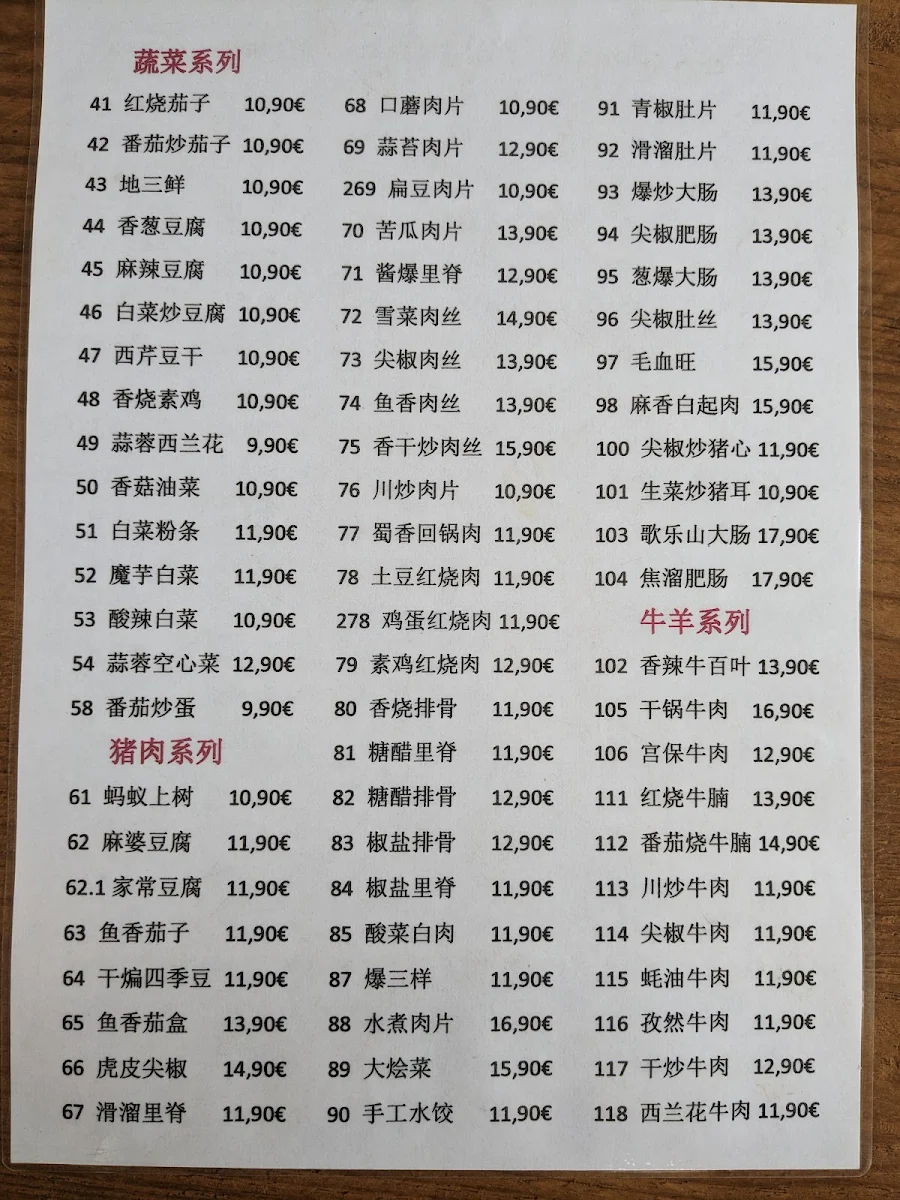 蔬菜系列
41 红烧茄子 10,90€
42 番茄炒茄子 10,90€
43 地三鲜 10,90€
44 香葱豆腐 10,90€
45 麻辣豆腐 10,90€
46 白菜炒豆腐 10,90€
47 西芹豆干 10,90€
48 香烧素鸡 10,90€
49 蒜蓉西兰花 9,90€
50 香菇油菜 10,90€
51 白菜粉条 11,90€
52 魔芋白菜 11,90€
53 酸辣白菜 10,90€
54 蒜蓉空心菜 12,90€
58 番茄炒蛋 9,90€
猪肉系列
61 蚂蚁上树 10,90€
62 麻婆豆腐 11,90€
62.1 家常豆腐 11,90€
63 鱼香茄子 11,90€
64 干煸四季豆 11,90€
65 鱼香茄盒 13,90€
66 虎皮尖椒 14,90€
67 滑溜里脊 11,90€
68 口蘑肉片 10,90€
69 蒜苔肉片 12,90€
269 扁豆肉片 10,90€
70 苦瓜肉片 13,90€
71 酱爆里脊 12,90€
72 雪菜肉丝 14,90€
73 尖椒肉丝 13,90€
74 鱼香肉丝 13,90€
75 香干炒肉丝 15,90€
76 川炒肉片 10,90€
77 蜀香回锅肉 11,90€
78 土豆红烧肉 11,90€
278 鸡蛋红烧肉 11,90€
79 素鸡红烧肉 12,90€
80 香烧排骨 11,90€
81 糖醋里脊 11,90€
82 糖醋排骨 12,90€
83 椒盐排骨 12,90€
84 椒盐里脊 11,90€
85 酸菜白肉 11,90€
87 爆三样 11,90€
88 水煮肉片 16,90€
89 大烩菜 15,90€
90 手工水饺 11,90€
91 青椒肚片 11,90€
92 滑溜肚片 11,90€
93 爆炒大肠 13,90€
94 尖椒肥肠 13,90€
95 葱爆大肠 13,90€
96 尖椒肚丝 13,90€
97 毛血旺 15,90€
98 麻香白起肉 15,90€
100 尖椒炒猪心 11,90€
101 生菜炒猪耳 10,90€
103 歌乐山大肠 17,90€
104 焦溜肥肠 17,90€
牛羊系列
102 香辣牛百叶 13,90€
105 干锅牛肉 16,90€
106 宫保牛肉 12,90€
111 红烧牛腩 13,90€
112 番茄烧牛腩 14,90€
113 川炒牛肉 11,90€
114 尖椒牛肉 11,90€
115 蚝油牛肉 11,90€
116 孜然牛肉 11,90€
117 干炒牛肉 12,90€
118 西兰花牛肉 11,90€